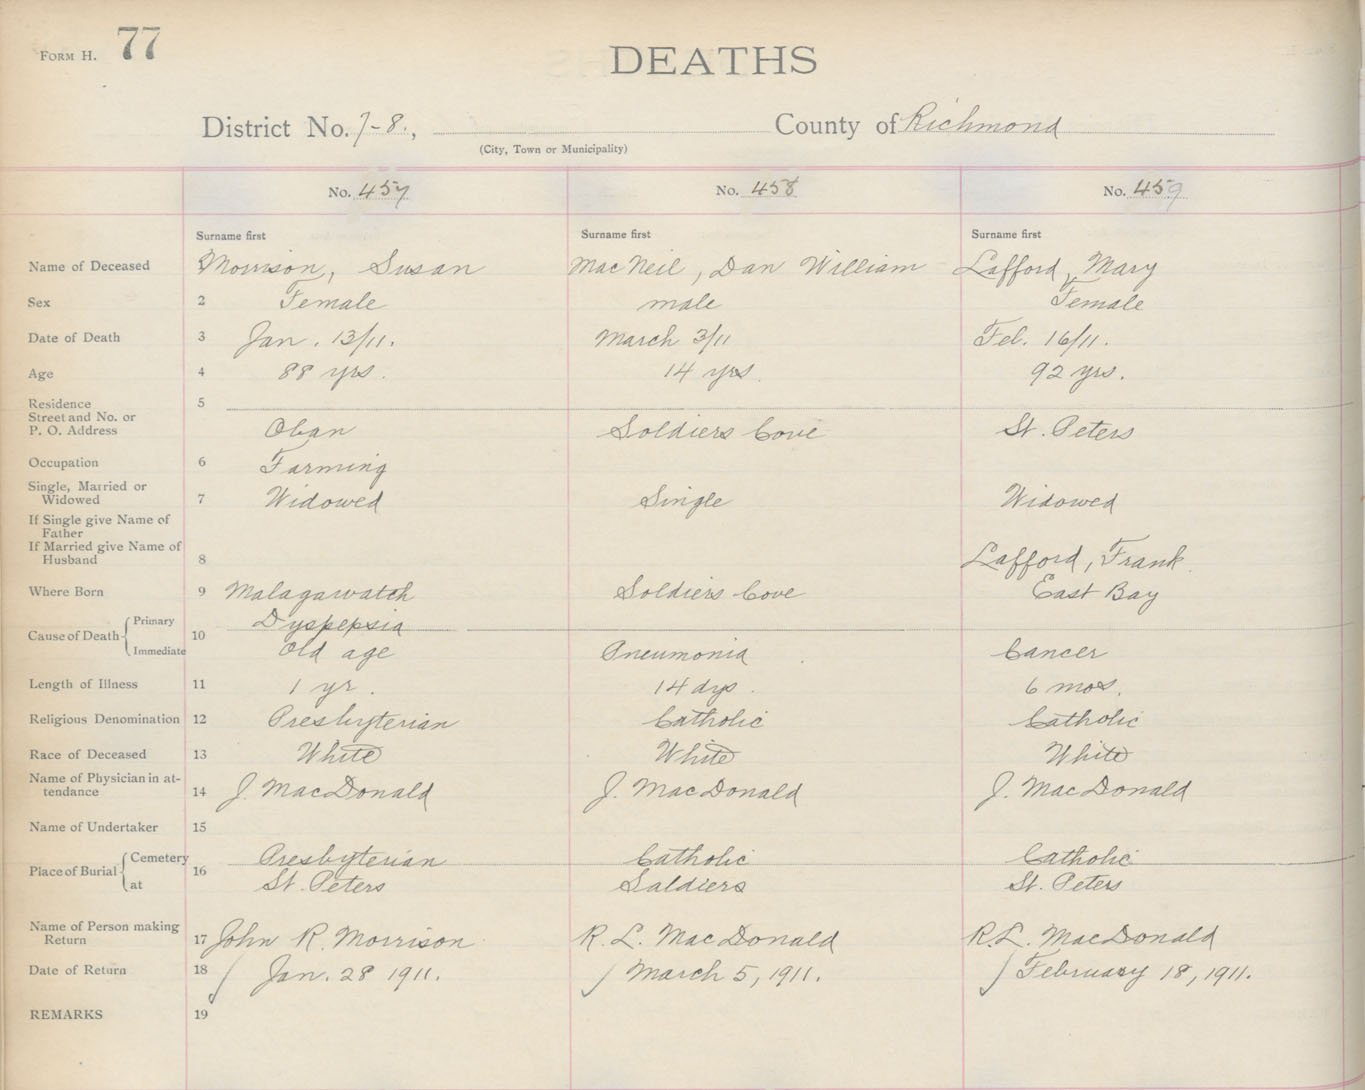 FORM H. 77
DEATHS
District No. 7-8., County of Richmond
(City, Town or Municipality)
No. 457 No. 458 No. 459
Surname first Surname first Surname first
Name of Deceased Morrison, Susan MacNeil, Dan William Lafford, Mary
Sex 2 Female male Female
Date of Death 3 Jan. 13/11. March 3/11 Feb. 16/11.
Age 4 88 yrs. 14 yrs. 92 yrs.
Residence 5
Street and No. or
P. O. Address Oban Soldiers Cove St. Peters
Occupation 6 Farming
Single, Married or
Widowed 7 Widowed Single Widowed
If Single give Name of
Father
If Married give Name of
Husband 8 Lafford, Frank
Where Born 9 Malagawatch Soldiers Cove East Bay
Cause of Death 10
Primary Dyspepsia
Immediate Old age Pneumonia Cancer
Length of Illness 11 1 yr. 14 dys. 6 mos.
Religious Denomination 12 Presbyterian Catholic Catholic
Race of Deceased 13 White White White
Name of Physician in at-
tendance 14 J. MacDonald J. MacDonald J. MacDonald
Name of Undertaker 15
Place of Burial 16
Cemetery Presbyterian Catholic Catholic
at St. Peters Saldiers St. Peters
Name of Person making
Return 17 John R. Morrison R. L. MacDonald R. L. MacDonald
Date of Return 18 Jan. 28 1911. March 5, 1911. February 18, 1911.
REMARKS 19